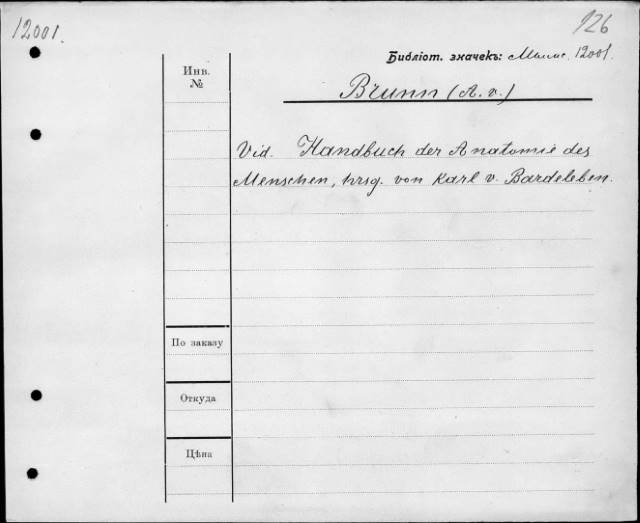 12001.
126
Библіот. значекъ: 12001.
Инв.
№
Brunn (A. v.)
Vid. Handbuch der Anatomie des
Menschen, hrsg. von Karl v. Bardeleben.
По заказу
Откуда
Цѣна